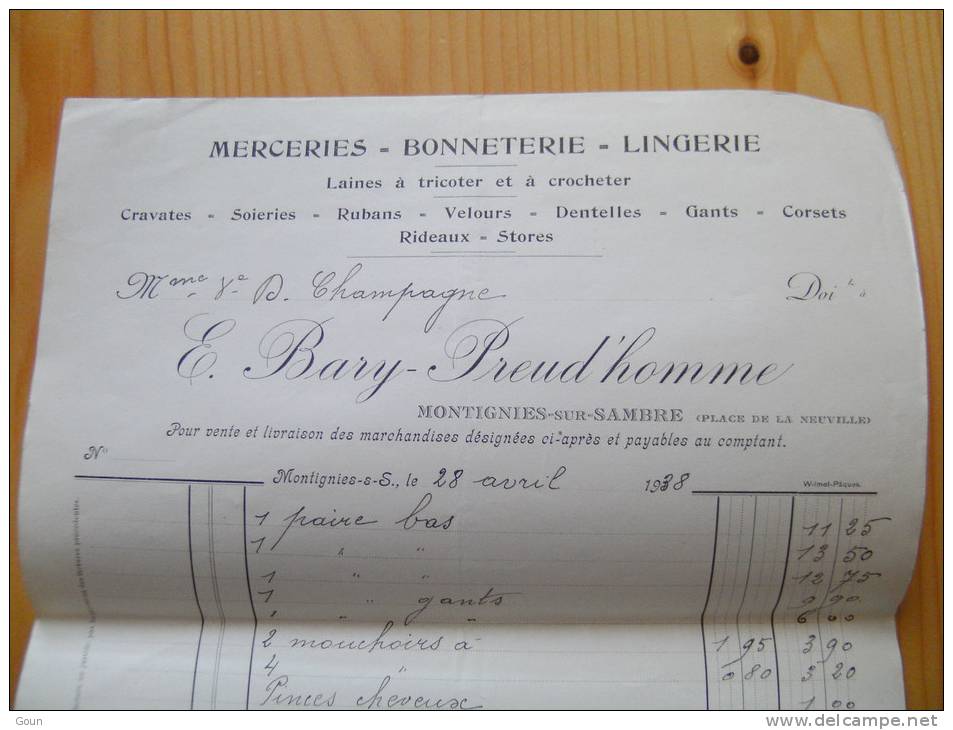 MERCERIES - BONNETERIE - LINGERIE
Laines à tricoter et à crocheter
Cravates - Soieries - Rubans - Velours - Dentelles - Gants - Corsets
Rideaux - Stores
Mme Ve D. Champagne Doit à
E. Bary-Preud'homme
MONTIGNIES-SUR-SAMBRE (PLACE DE LA NEUVILLE)
Pour vente et livraison des marchandises désignées ci-après et payables au comptant.
No
Montignies-s-S., le 28 avril 1938
Wilmet-Pâques.
1 paire bas 11 25
1 " " 13 50
1 " " 12 75
1 " gants 9 90
" " 6 00
2 mouchoirs à 1 95 3 90
4 " 0 80 3 20
Pinces cheveux 1 00
Goun
Delcampe.net